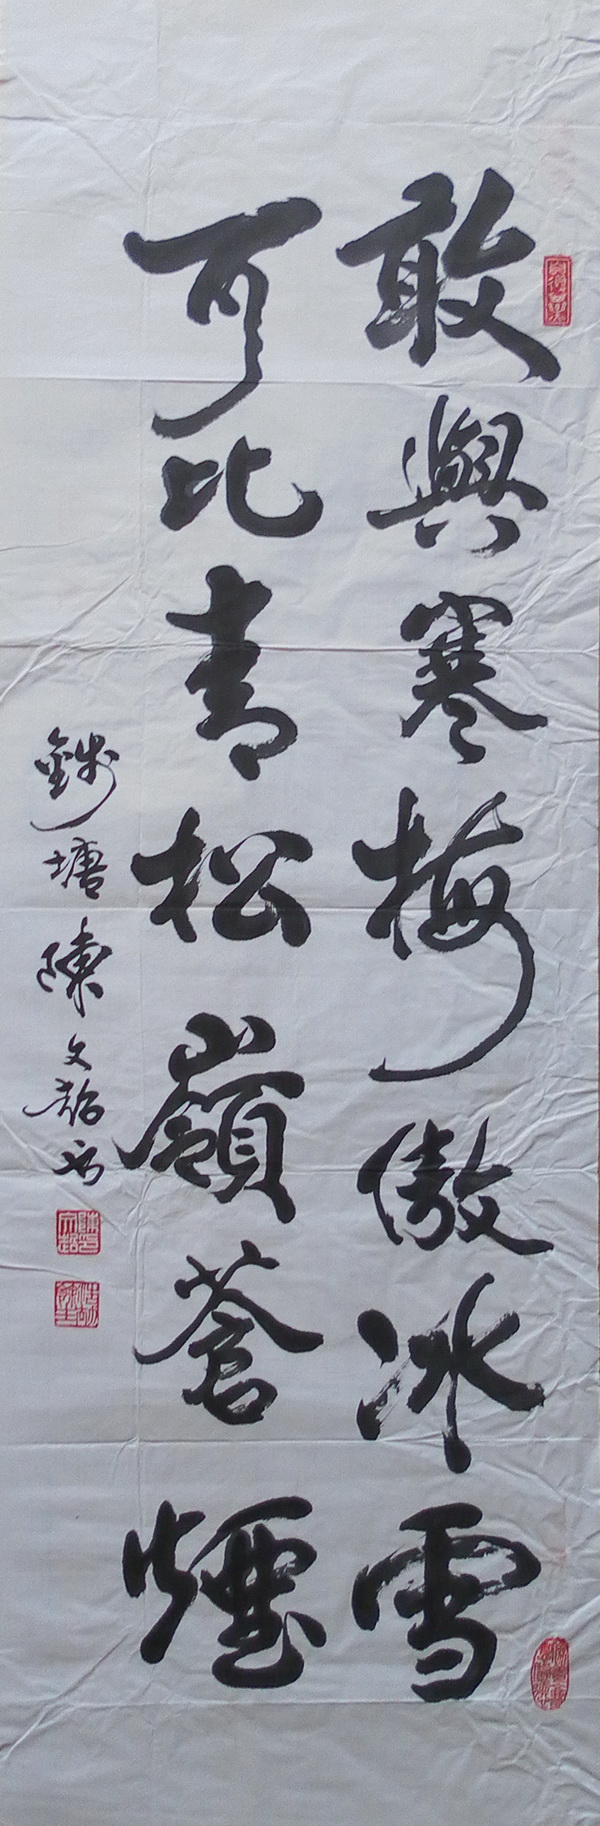 敢與寒梅傲冰雪
可比青松嶺蒼煙
錢塘陳文韜書